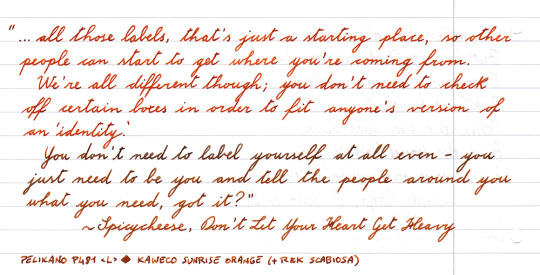 "... all those labels, that's just a starting place, so other
people can start to get where you're coming from.
We're all different though; you don't need to check
off certain boxes in order to fit anyone's version of
an 'identity.'
You don't need to label yourself at all even – you
just need to be you and tell the people around you
what you need, got it?"
~ Spicycheese, Don't Let Your Heart Get Heavy
PELIKANO P481 <L> ◆ KAWECO SUNRISE ORANGE (+ R&K SCABIOSA)